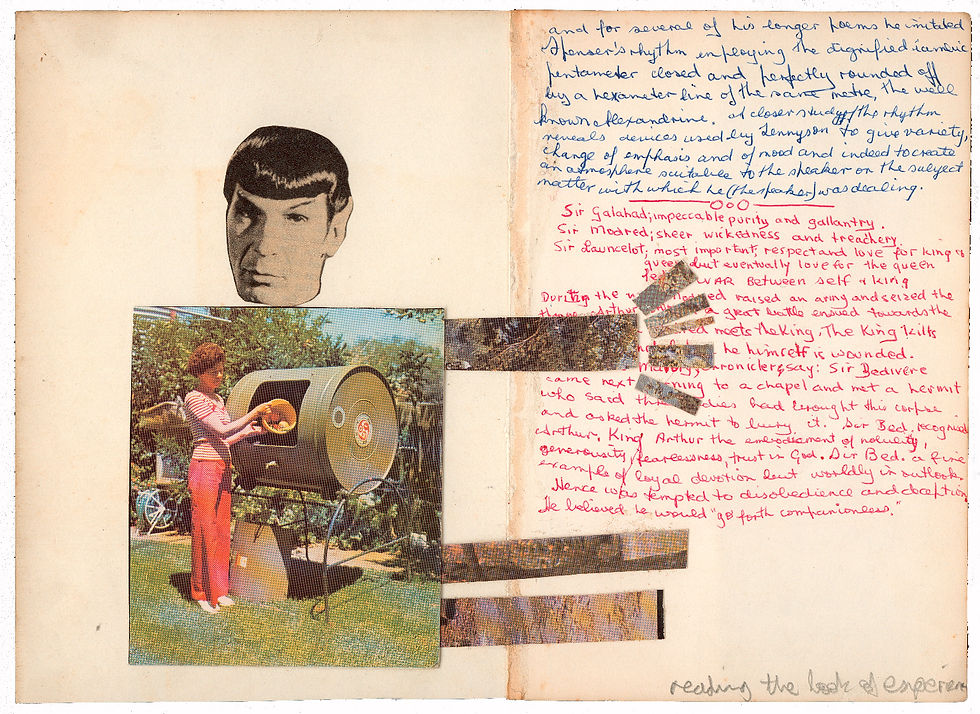 and for several of his longer poems he imitated
Spenser's rhythm employing the dignified iambic
pentameter closed and perfectly rounded off
by a hexameter line of the same metre, the well
known alexandrine. A closer study of the rhythm
reveals devices used by Tennyson to give variety,
change of emphasis and of mood and indeed to create
an atmosphere suitable to the speaker on the subject
matter with which he (the speaker) was dealing.
Sir Galahad; impeccable purity and gallantry.
Sir Modred; sheer wickedness and treachery
Sir Launcelot; most important, respect and love for king &
queen but eventually love for the queen
WAR between self & king
During the raised an army and seized the
a great battle ensued towards the
meets the King. The King kills
he himself is wounded.
chroniclers, say: Sir Bedivere
came next to a chapel and met a hermit
who said had brought this corpse
and asked the hermit to bury it. Sir Bed. recognised
Arthur. King Arthur the embodiment of nobility,
generousity, fearlessness, trust in God. Sir Bed. a fine
example of loyal devotion but worldly in outlook
Hence was tempted to disobedience and deception
He believed he would "go forth companionless."
reading the book of